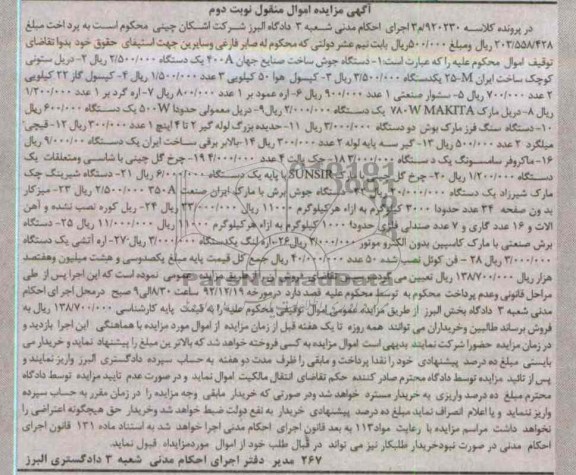 آگهی مزایده اموال منقول نوبت دوم
در پرونده کلاسه ۹۲۰۲۳۰/م۳ اجرای احکام مدنی شعبه ۳ دادگاه البرز شرکت اشکان چینی محکوم است به پرداخت مبلغ
۲۰۲/۵۵۸/۴۲۸ ریال ومبلغ ۵۰۰/۰۰۰ریال بابت نیم عشر دولتی که محکوم له صابر فارغی وسایرین جهت استیفای حقوق خود بدوا تقاضای
توقیف اموال محکوم علیه را که عبارت است۱- دستگاه جوش ساخت صنایع جهان ۴۰۰A یک دستگاه ۲/۵۰۰/۰۰۰ ریال ۲- دریل ستونی
کوچک ساخت ایران ۲۵-M یکدستگاه ۳/۵۰۰/۰۰۰ ریال ۳- کپسول هوا ۵۰ کیلویی ۳ عدد ۱/۵۰۰/۰۰۰ ریال ۴- کپسول گاز ۲۲ کیلویی
۲ عدد ۷۰۰/۰۰۰ ریال ۵- سشوار صنعتی ۱ عدد ۹۰۰/۰۰۰ ریال ۶- اره عمود بر ۱ عدد ۸۰۰/۰۰۰ ریال ۷- اره گرد بر ۱ عدد ۱/۲۰۰/۰۰۰
ریال ۸-دریل مارک MAKITA ۷۸۰W یک دستگاه ۲/۰۰۰/۰۰۰ ریال۹- دریل معمولی حدودا ۵۰۰W یک دستگاه ۶۰۰/۰۰۰ ریال
۱۰- دستگاه سنگ فرز مارک بوش دو دستگاه ۳/۰۰۰/۰۰۰ ریال ۱۱- حدیده بزرگ لوله گیر ۲ تا ۴ اینچ ۱ عدد ۳۰۰/۰۰۰ ریال ۱۲-قیچی
میلگرد ۲ عدد ۵۰۰/۰۰۰ ریال ۱۳-گیر سه پایه لوله ۲ عدد ۳۰۰/۰۰۰ ریال ۱۴-بالابر برقی ساخت ایران یک دستگاه ۹/۰۰۰/۰۰۰ ریال
۱۶-ماکروفر سامسونگ یک دستگاه ۲/۰۰۰/۰۰۰ ۱۸-جک پالت ۴ عدد ۴/۰۰۰/۰۰۰ ۱۹- چرخ گل چینی با شاسی ومتعلقات یک
دستگاه ۱/۲۰۰/۰۰۰ ریال ۲۰- چرخ گل مارک SUNSIR با پایه یک دستگاه ۶/۰۰۰/۰۰۰ ریال ۲۱- دستگاه شیرینگ چک
مارک شیرزاد یک دستگاه دستگاه جوش برش با مارک ایران صنعت ۳۵۰A ۲/۵۰۰/۰۰۰ ریال ۲۳-میزکار
بد ون صفحه ۳۴ عدد حدودا ۳۰۰۰ کیلوگرم به ازاء هر کیلوگرم ۱۱۰۰۰ ریال ۳۳/۰۰۰/۰۰۰ ریال ۲۴- ریل کوره نصب نشده و آهن
الات و ۱۶ عدد گاری و ۷ عدد صندلی فلزی حدودا ۱۰۰۰ کیلوگرم به ازاء هر کیلوگرم ۱۱۰۰۰ ریال ۱۱/۰۰۰/۰۰۰ ریال ۲۵- دستگاه
برش صنعتی با مارک کاسپین بدون الکترو موتور ۳/۰۰۰/۰۰۰ ریال۲۶-اره لنگ یکدستگاه ۳/۰۰۰/۰۰۰ ریال۲۷- اره آتشی یک دستگاه
۳/۰۰۰/۰۰۰ ریال ۲۸ - فن کوئل نصب شده ۵۰ عدد ۴۰/۰۰۰/۰۰۰ ریال جمع کل قیمت پایه مبلغ یکصدوسی و هشت میلیون وهفتصد
هزار ریال ۱۳۸/۷۰۰/۰۰۰ ریال تعیین می گردد تقاضای فروش از طریق مزایده عمومی نموده است که این اجرا پس از طی
مراحل قانونی وعدم پرداخت محکوم به توسط محکوم علیه قصد دارد درمورخه ۹۲/۱۲/۱۹ ساعت ۸/۳۰الی۹ صبح درمحل اجرای احکام
مدنی شعبه ۳ دادگاه بخش البرز از طریق مزایده عمومی اموال توقیفی محکوم علیه را به قیمت پایه کارشناسی ۱۳۸/۷۰۰/۰۰۰ ریال به
فروش برساند طالبین وخریداران می توانند همه روزه تا یک هفته قبل از زمان مزایده از اموال مورد مزایده با هماهنگی این اجرا بازدید و
در زمان مزایده حضورا شرکت نمایند بدیهی است اموال مزایده به کسی فروخته خواهد شد که بالاترین مبلغ را پیشنهاد نماید و خریدار می
بایستی مبلغ ده درصد پیشنهادی خود را نقدا پرداخت و مابقی را ظرف مدت دو هفته به حساب سپرده دادگستری البرز واریز نمایند و
پس از تائید مزایده توسط دادگاه محترم صادر کننده حکم تقاضای انتقال مالکیت اموال نماید و در صورت عدم تایید مزایده توسط دادگاه
محترم مبلغ ده درصد واریزی به خریدار مسترد خواهد شد ودر صورتی که خریدار مابقی وجه مزایده را در زمان مقرر به حساب سپرده
واریز ننماید و یا اعلام انصراف نماید مبلغ ده درصد پیشنهادی خریدار به نفع دولت ضبط خواهد شد وخریدار حق هیچگونه اعتراضی را
نخواهد داشت مراسم مزایده با رعایت مواد۱۱۳ به بعد قانون اجرای احکام مدنی اجرا خواهد شد به استناد ماده ۱۳۱ قانون اجرای
احکام مدنی در صورت نبودخریدار طلبکار نیز می تواند در قبال طلب خود از اموال موردمزایداه قبول نماید.
۲۶۷ مدیر دفتر اجرای احکام مدنی شعبه ۳ دادگستری البرز